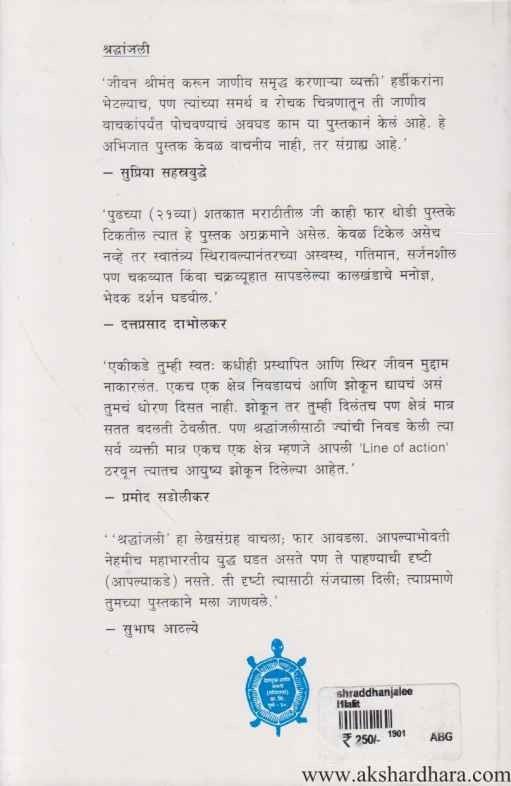 श्रद्धांजली
'जीवन श्रीमंत करून जाणीव समृद्ध करणाऱ्या व्यक्ती' हर्डीकरांना
भेटल्याच, पण त्यांच्या समर्थ व रोचक चित्रणातून ती जाणीव
वाचकांपर्यंत पोचवण्याचं अवघड काम या पुस्तकानं केलं आहे. हे
अभिजात पुस्तक केवळ वाचनीय नाही, तर संग्राह्य आहे.'
– सुप्रिया सहस्रबुद्धे
'पुढच्या (२१व्या) शतकात मराठीतील जी काही फार थोडी पुस्तके
टिकतील त्यात हे पुस्तक अग्रक्रमाने असेल. केवळ टिकेल असेच
नव्हे तर स्वातंत्र्य स्थिरावल्यानंतरच्या अस्वस्थ, गतिमान, सर्जनशील
पण चकव्यात किंवा चक्रव्यूहात सापडलेल्या कालखंडाचे मनोज्ञ,
भेदक दर्शन घडवील.'
– दत्तप्रसाद दाभोलकर
'एकीकडे तुम्ही स्वतः कधीही प्रस्थापित आणि स्थिर जीवन मुद्दाम
नाकारलंत. एकच एक क्षेत्र निवडायचं आणि झोकून द्यायचं असं
तुमचं धोरण दिसत नाही. झोकून तर तुम्ही दिलंतच पण क्षेत्रं मात्र
सतत बदलती ठेवलीत. पण श्रद्धांजलीसाठी ज्यांची निवड केली त्या
सर्व व्यक्ती मात्र एकच एक क्षेत्र म्हणजे आपली 'Line of action'
ठरवून त्यातच आयुष्य झोकून दिलेल्या आहेत.'
– प्रमोद सडोलीकर
' 'श्रद्धांजली' हा लेखसंग्रह वाचला; फार आवडला. आपल्याभोवती
नेहमीच महाभारतीय युद्ध घडत असते पण ते पाहण्याची दृष्टी
(आपल्याकडे) नसते. ती दृष्टी त्यासाठी संजयाला दिली; त्याप्रमाणे
तुमच्या पुस्तकाने मला जाणवले.'
– सुभाष आठल्ये
shraddhanjalee
₹ 250/- 1901 ABG
www.akshardhara.com